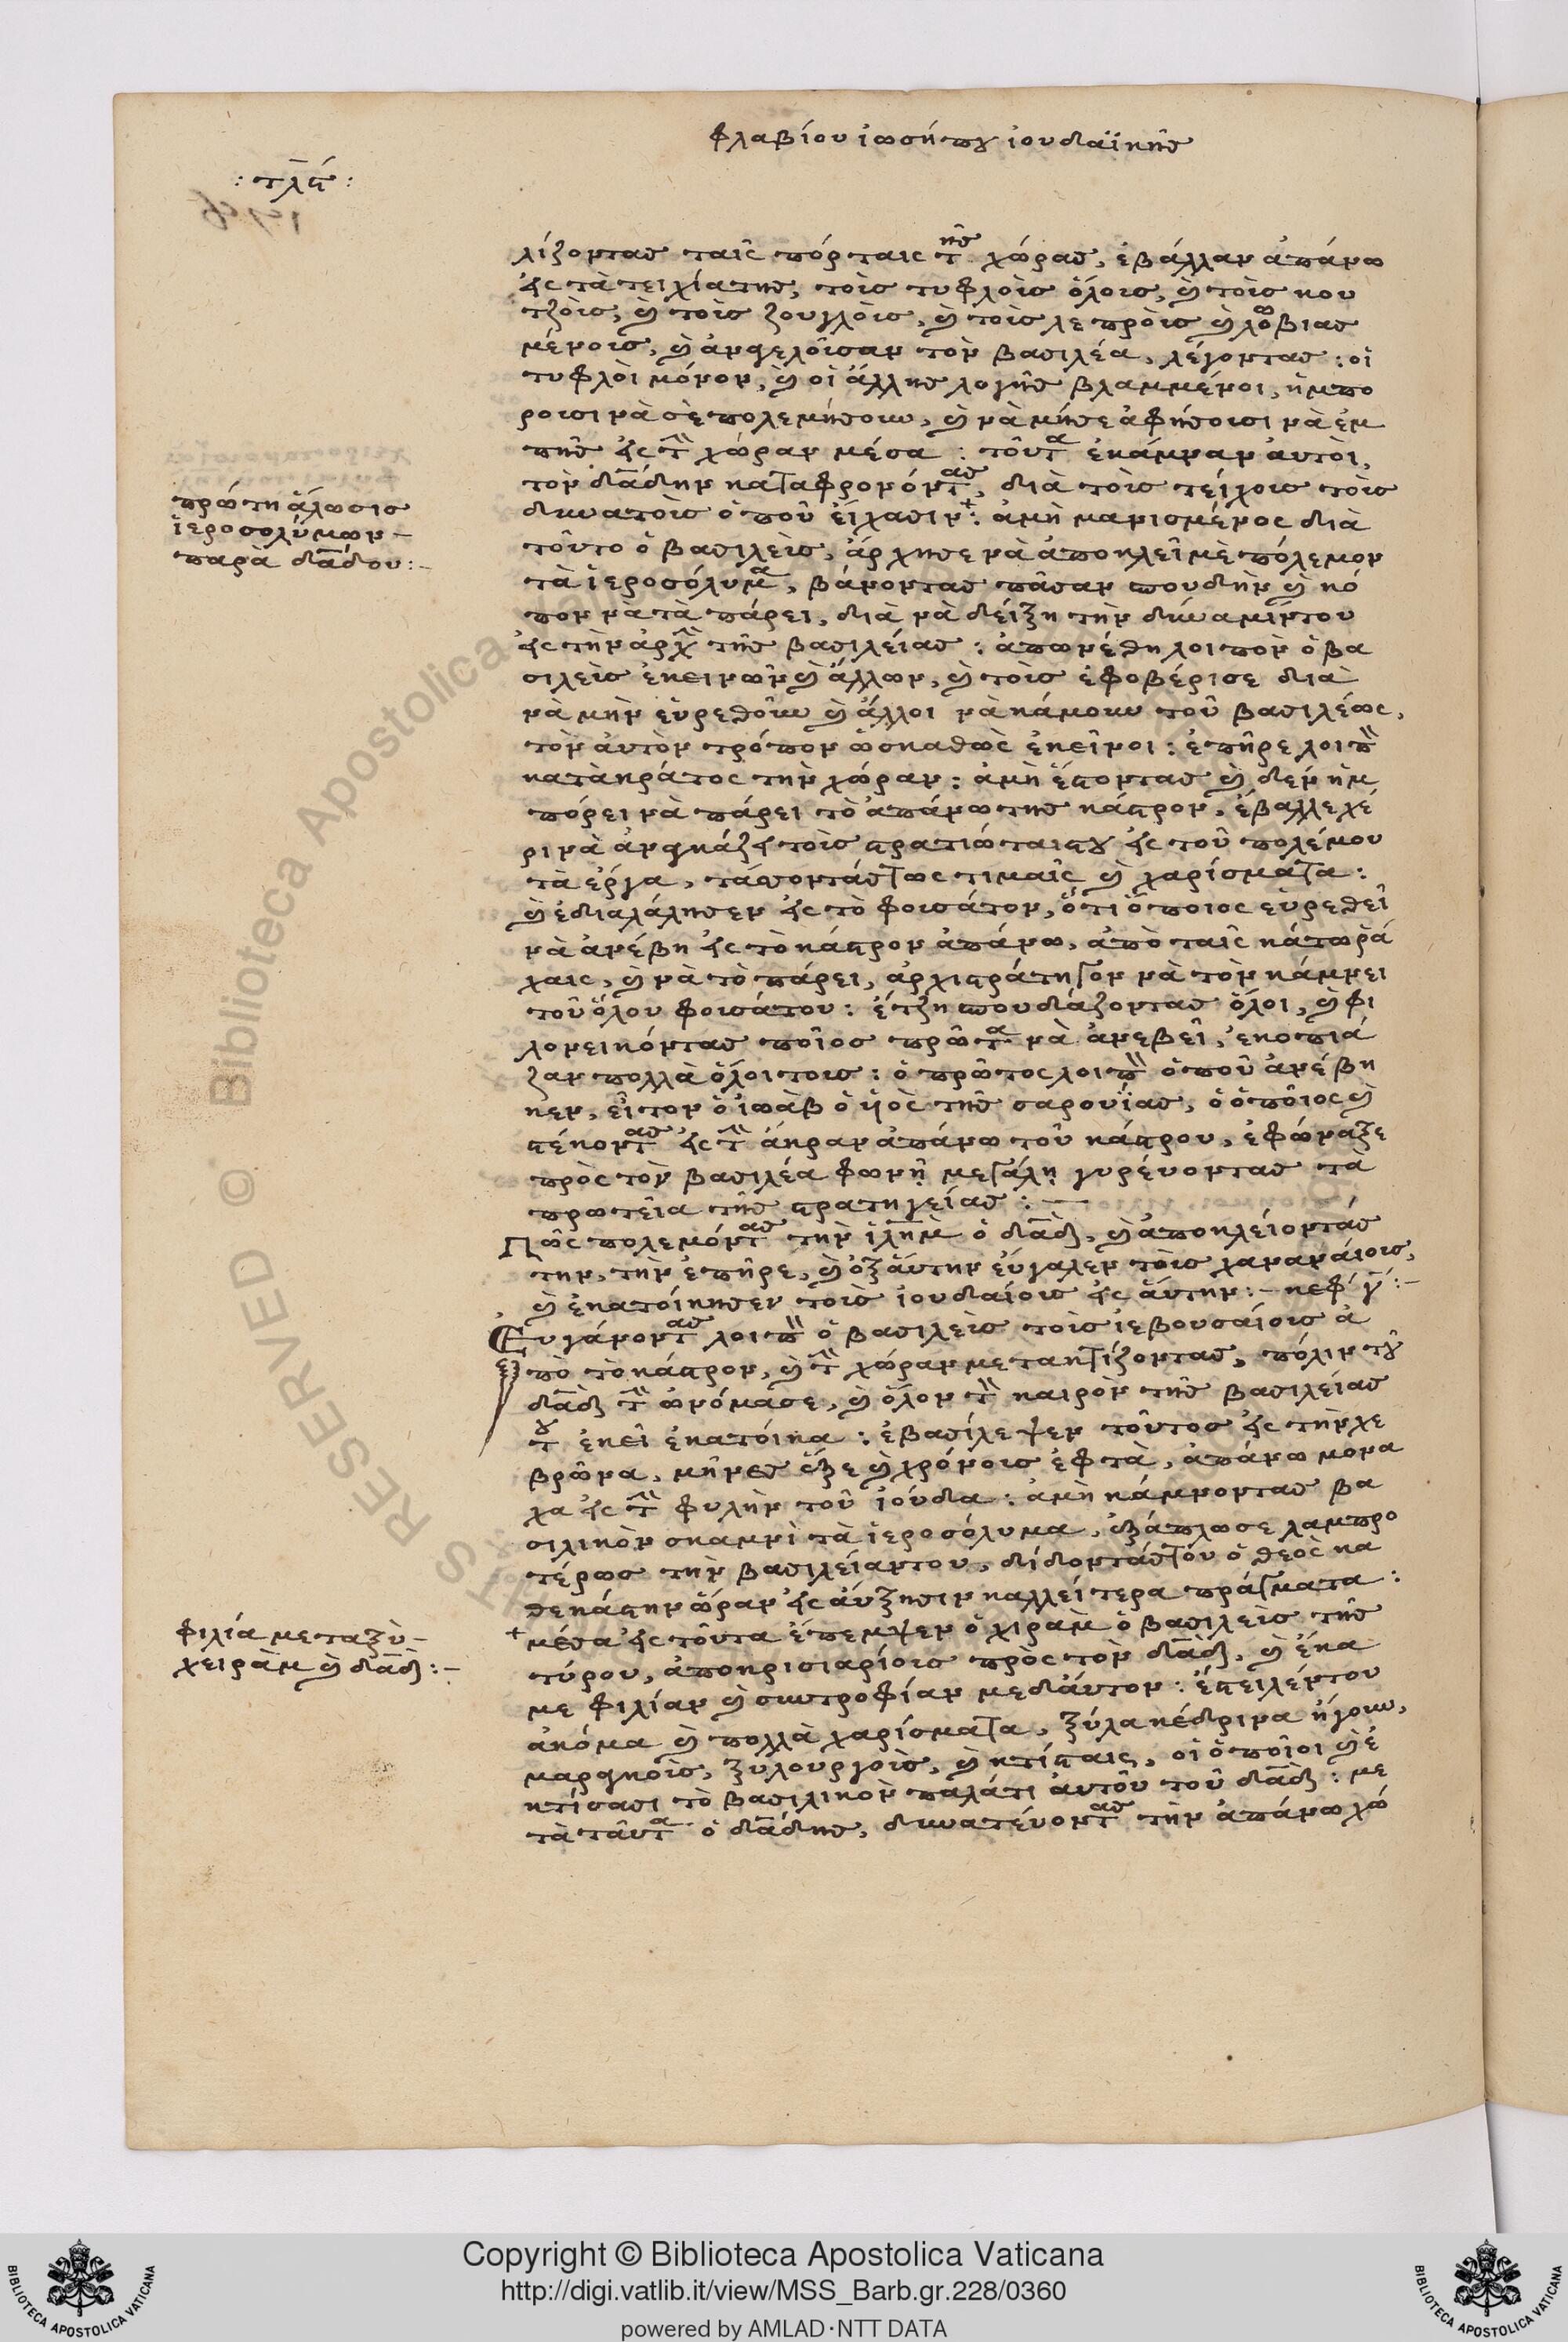 φλαβίου ἰωσήπου ἰουδαϊκῆς
: τλϛ :
λίζοντας ταῖς πόρταις τῆς χώρας, ἐβάλλαν ἀπάνω
εἰς τὰ τειχία της, τοὶς τυφλοὶς ὅλοις, καὶ τοὶς κου
τζοὶς, καὶ τοὶς ζουγλοὶς, καὶ τοὶς λεπροὶς καὶ λωβιασ
μένοις, καὶ ἀνγελοῖσαν τὸν βασιλέα, λέγοντας : οἱ
τυφλοὶ μόνον, καὶ οἱ ἄλλης λογῆς βλαμμένοι, ἠμπο
ροισι νὰ σὲ πολεμήσουν, καὶ νὰ μήσε ἀφήσοισι νὰ ἐμ
πῆς εἰς τὴν χώραν μέσα : τοῦτα ἐκάμναν ἀυτοὶ,
τὸν δαδὴν καταφρονόντας, διὰ τοὶς τείχοις τοὶς
δυνατοὶς ὁποῦ εἴχασιν : ἀμὴ μανισμένος διὰ
τοῦτο ὁ βασιλεὶς, ἄρχησε νὰ ἀποκλεῖ μὲ πόλεμον
τὰ ἱεροσόλυμα, βάνοντας πᾶσαν σπουδὴν καὶ κό
πον νὰ τὰ πάρει, διὰ νὰ δείξη τὴν δύναμίν του
εἰς τὴν ἀρχὴν τῆς βασιλείας : ἀπωνέθη λοιπὸν ὁ βα
σιλεὶς ἐκεινῶν καὶ ἄλλων, καὶ τοὶς ἐφοβέρισε διὰ
νὰ μὴν εὑρεθοῦν καὶ ἄλλοι νὰ κάμουν τοῦ βασιλέως,
τὸν ἀυτὸν τρόπον ὡσκαθὼς ἐκεῖνοι : ἐπῆρε λοιπὸν
κατὰ κράτος τὴν χώραν : ἀμὴ ἔστοντας καὶ δεν ἠμ
πόρει νὰ πάρει τὸ ἀπάνω της κάστρον, ἐβαλλε χέ
ρι νὰ ἀνγκάζει τοὶς στρατιώταις του εἰς τοῦ πολέμου
τὰ ἐργα, τάσσοντάς τως τιμαῖς καὶ χαρίσματα :
καὶ ἐδιαλάλησεν εἰς τὸ φοισάτον, ὅτι ὅποιος εὑρεθεῖ
νὰ ἀνέβη εἰς τὸ κάστρον ἀπάνω, ἀπὸ ταῖς κάτω ρά
χαις, καὶ νὰ τὸ πάρει, ἀρχιστράτηγον νὰ τὸν κάμνει
τοῦ ὅλου φοισάτου : ἐτζη σπουδάζοντας ὅλοι, καὶ φι
λονεικόντας ποῖος πρῶτα νὰ ἀνεβεῖ, ἐκοπιά
ζαν πολλὰ ὅλοι τοις : ὁ πρῶτος λοιπὸν ὁποῦ ἀνέβη
κεν, εἶτον ὁ ἰωὰβ ὁ ὑιὸς τῆς σαρουΐας, ὁ ὁποῖος καὶ
στέκοντας εἰς τὴν ἄκραν ἀπάνω τοῦ κάστρου, ἐφώναξε
πρὸς τὸν βασιλέα φωνῆ μεγάλη γυρέυοντας τὰ
πρωτεῖα τῆς στρατηγείας : —
Πῶς πολεμόντας τὴν ἱλὴμ ὁ δαδ, καὶ ἀποκλείοντάς
την, τὴν ἐπῆρε, καὶ ὀξ ἄυτην ἐύγαλεν τοὶς χανανάιοις,
καὶ ἐκατοίκησεν τοὶς ἰουδαίοις εἰς ἄυτην : – κεφ γ´ : –
Ευγάνοντας λοιπὸν ὁ βασιλεὶς τοὶς ἰεβουσαίοις ἀ
πὸ τὸ κάστρον, καὶ τὴν χώραν μετακτίζοντας, πόλιν τοῦ
δαδ τὴν ὠνόμασε, καὶ ὅλον τὸν καιρὸν τῆς βασιλείας
του ἐκεῖ ἐκατόικα : ἐβασίλεψεν τοῦτος εἰς τὴν χε
βρῶνα, μῆνες ἕξε καὶ χρόνοις ἑφτὰ, ἀπάνω μονα
χα εἰς τὴν φυλὴν τοῦ ἰούδα : ἀμὴ κάμνοντας βα
σιλικὸν σκαμνὶ τὰ ἱεροσόλυμα, ἐξάπλωσε λαμπρο
τέρως τὴν βασιλείαν του, δίδοντάς τόυ ὁ θεὸς κα
θεκάστην ὥραν εἰς ἄυξησιν καλλείτερα πράγματα :
μέσα εἰς τοῦτα ἐπεμψεν ὁ χιρὰμ ὁ βασιλεὶς τῆς
τύρου, ἀποκρισιαρίοις πρὸς τὸν δαδ, καὶ ἔκα
με φιλίαν καὶ συντροφίαν μεδάυτον : ἔστειλέν του
ἀκόμα καὶ πολλὰ χαρίσματα, ξύλα κέδρινα ἤγουν,
μαργκοὶς, ξυλουργοὶς, καὶ κτίσταις, οἱ ὁποῖοι καὶ ἐ
κτίσασι τὸ βασιλικὸν παλάτι ἀυτοῦ τοῦ δαδ : με
τὰ ταῦτα ὁ δαδὴς, δυνατέυοντας τὴν ἀπάνω χώ
πρώτη ἅλωσις
ἱεροσολύμων –
παρὰ δαδου : –
φιλία μεταξὺ –
χειρὰμ καὶ δαδ : –
Copyright © Biblioteca Apostolica Vaticana
http://digi.vatlib.it/view/MSS_Barb.gr.228/0360
powered by AMLAD·NTT DATA
BIBLIOTECA APOSTOLICA VATICANA
BIBLIOTECA APOSTOLICA VATICANA